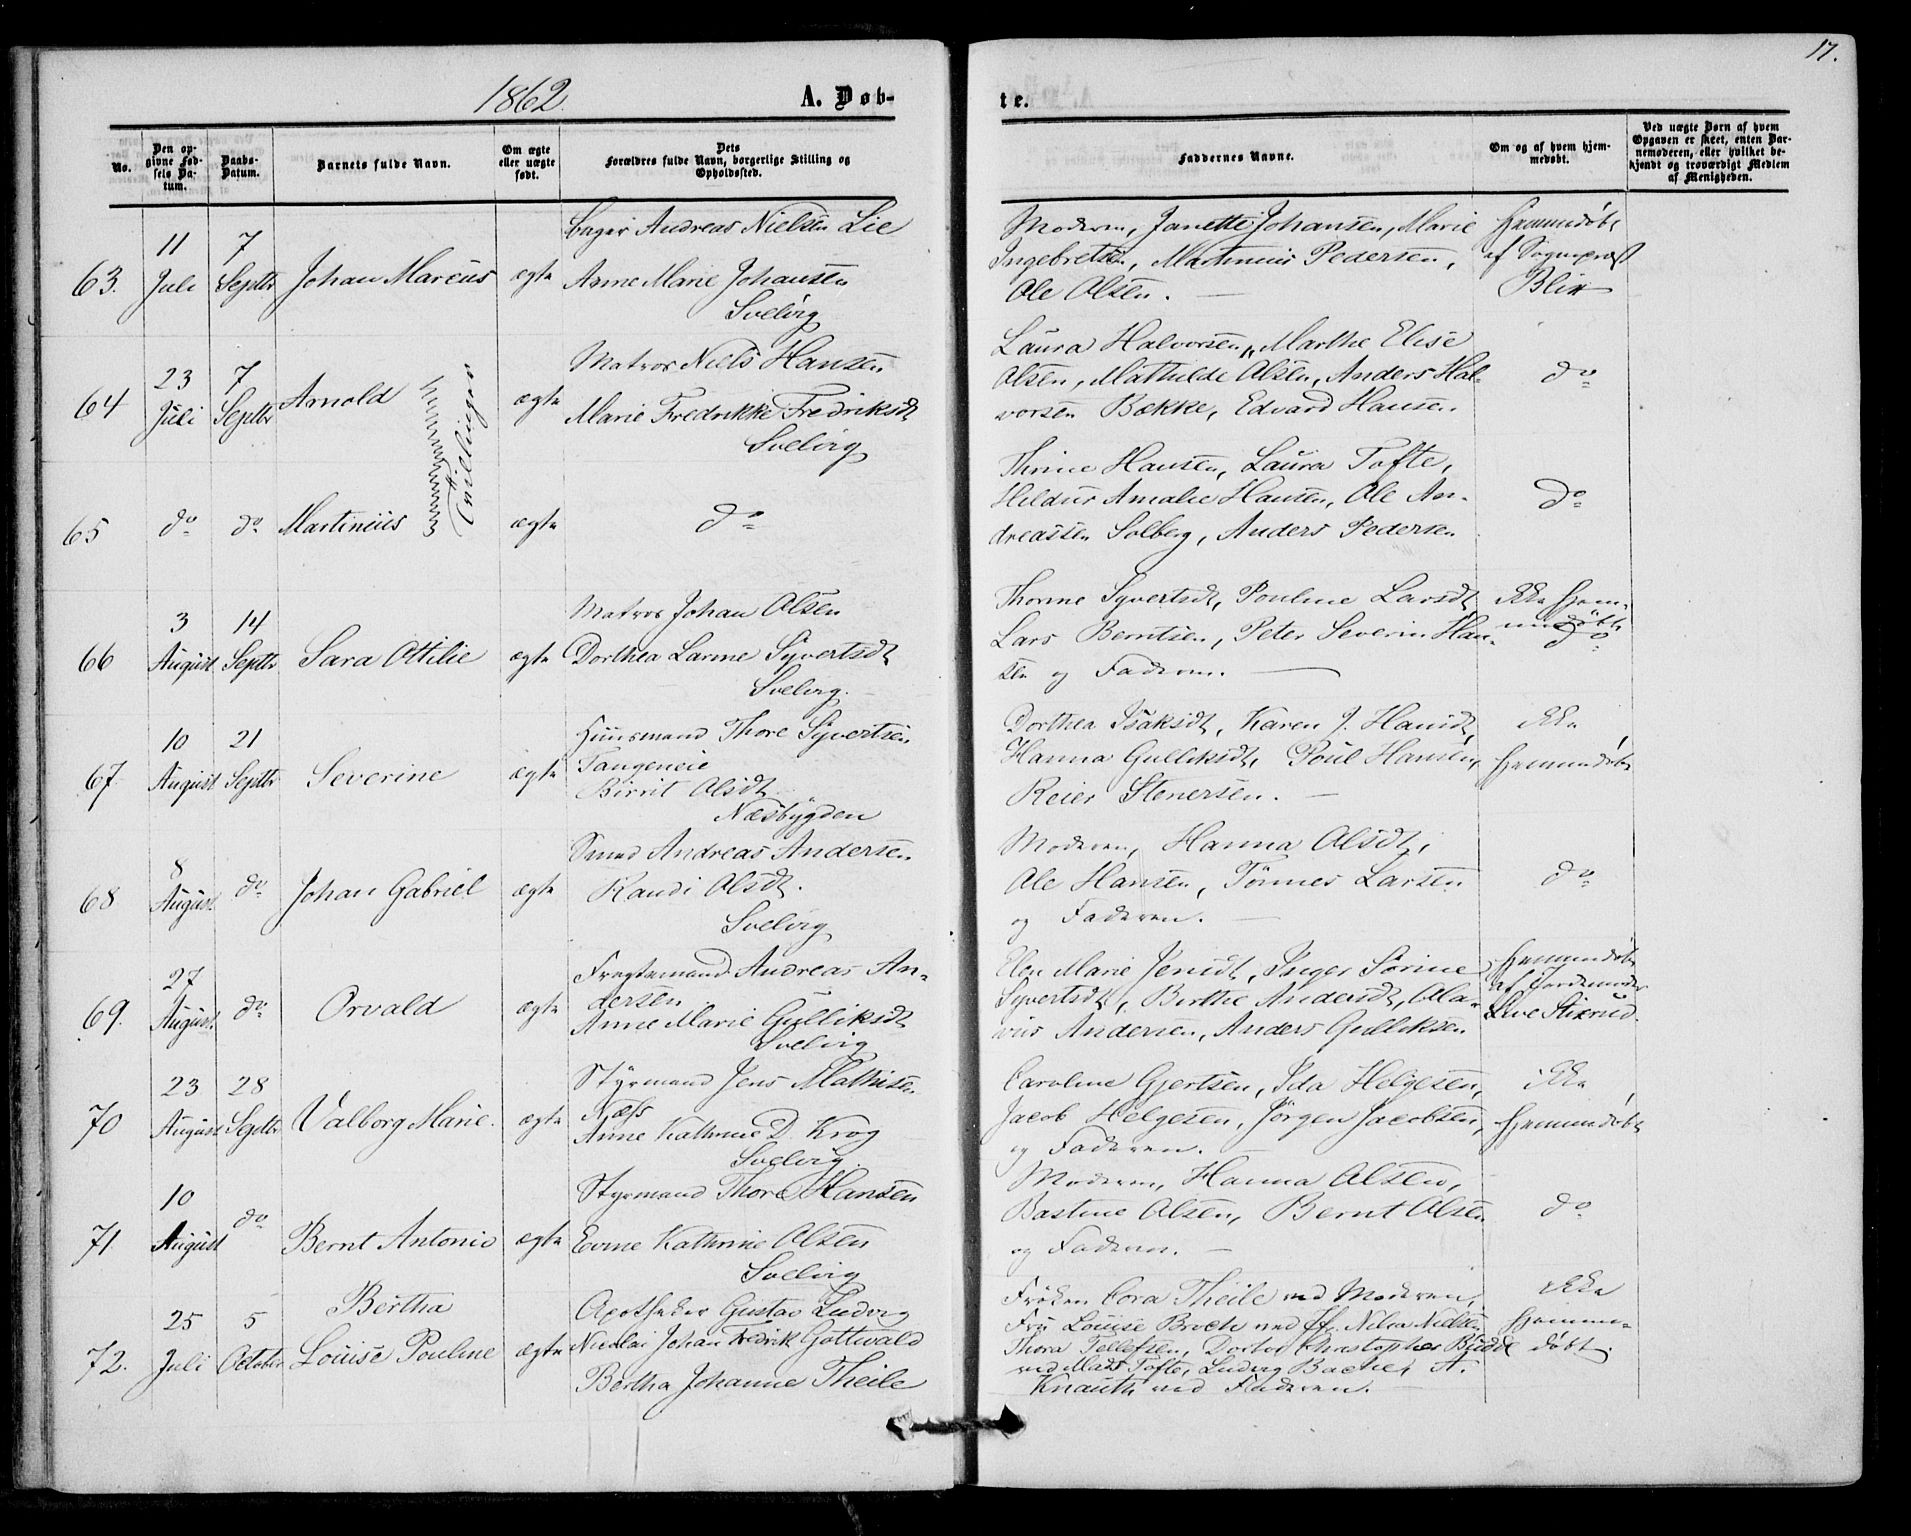 17.
1862.
A. Døb-
te.
No.
Den op-
givne Fød-
sels Da-
tum.
Daabs-
Datum.
Barnets fulde Navn.
Om ægte
eller uægte
født.
Dets
Forældres fulde Navn, borgerlige Stilling og
Opholdssted.
Faddernes Navne.
Om og af hvem hjem-
medøbt.
Ved uægte Børn af hvem
Opgaven er skeet, enten Bar-
nemoderen, eller hvilket be-
kjendt og troværdigt Medlem
af Menigheden.
63.
11
Juli
7
Septbr
Johan Marcus
ægte
Bager Andreas Nielsen Lie
Anne Marie Johansen
Svelvig
Moderen, Janette Johansen, Marie
Ingebretsen, Martinius Pedersen,
Ole Olsen.
Hjemmedøbt
af Sognepræst
Blix
64
23
Juli
7
Septbr
Arnold
Tvillinger
ægte
Matros Niels Hansen
Marie Fredrikke Fredriksdt
Svelvig
Laura Halvorsen, Marthe Elise
Olsen, Mathilde Olsen, Anders Hal-
vorsen Bække, Edvard Hansen.
do
65
do
do
Martinius
ægte
do
Thrine Hansen, Laura Tofte,
Heldur Amalie Hansen, Ole An-
dreassen Solberg, Anders Pedersen
do
66
3
August
14
Septbr
Sara Ottilie
ægte
Matros Johan Olsen
Dorthea Larine Syvertsdt
Svelvig.
Thorine Syvertsdt, Pouline Larsdt,
Lars Berntsen, Peter Severin Han-
sen og Faderen.
ikke hjem-
medøbt
do
67.
10
August
21
Septbr
Severine
ægte
Huusmand Thore Syvertsen
Tangeneie
Birrit Olsdt
Næsbygden
Dorthea Isaksdt, Karen J. Hansdt,
Hanna Gulliksdt, Poul Hansen,
Reier Stenersen.
ikke
hjemmedøbt
68
8
August
do
Johan Gabriel
ægte
Smed Andreas Andersen
Randi Olsdt.
Svelvig
Moderen, Hanna Olsdt,
Ole Hansen, Tønnes Larsen
og Faderen.
do
69.
27
August
do
Orvald
ægte
Fragtemand Andreas An-
dersen
Anne Marie Gulliksdt
Svelvig
Elen Marie Jensdt, Inger Sørine
Syvertsdt, Berthe Andersdt, Ola-
vus Andersen, Anders Gulliksen
Hjemmedøbt
af Jordemoder
Live Stixrud.
70
23
August
28
Septbr
Valborg Marie.
ægte
Styrmand Jens Mathisen
Næss
Anne Kathrine D. Krog
Svelvig.
Caroline Gjertsen, Ida Helgesen,
Jacob Helgesen, Jørgen Jacobsen,
og Faderen.
ikke
hjemmedøbt
71.
10
August
do
Bernt Antonio
ægte
Styrmand Thore Hansen
Evine Kathrine Olsen
Svelvig
Moderen, Hanna Olsen,
Bastine Olsen, Bernt Olsen
og Faderen.
do
72.
25
Juli
5
October
Bertha
Louise Pouline
ægte
Apotheker Gustav Ludvig
Nicolai Johan Fredrik Gottwald
Bertha Johanne Theile
Frøken Cora Theile ved Moderen,
Fru Louise Broch ved Nielsen
Thora Tellefsen, Doctor Christopher Budde
ved Mads Tofte, Ludvig Bache, A.
Knauth ved Faderen.
ikke
hjemme-
døbt.